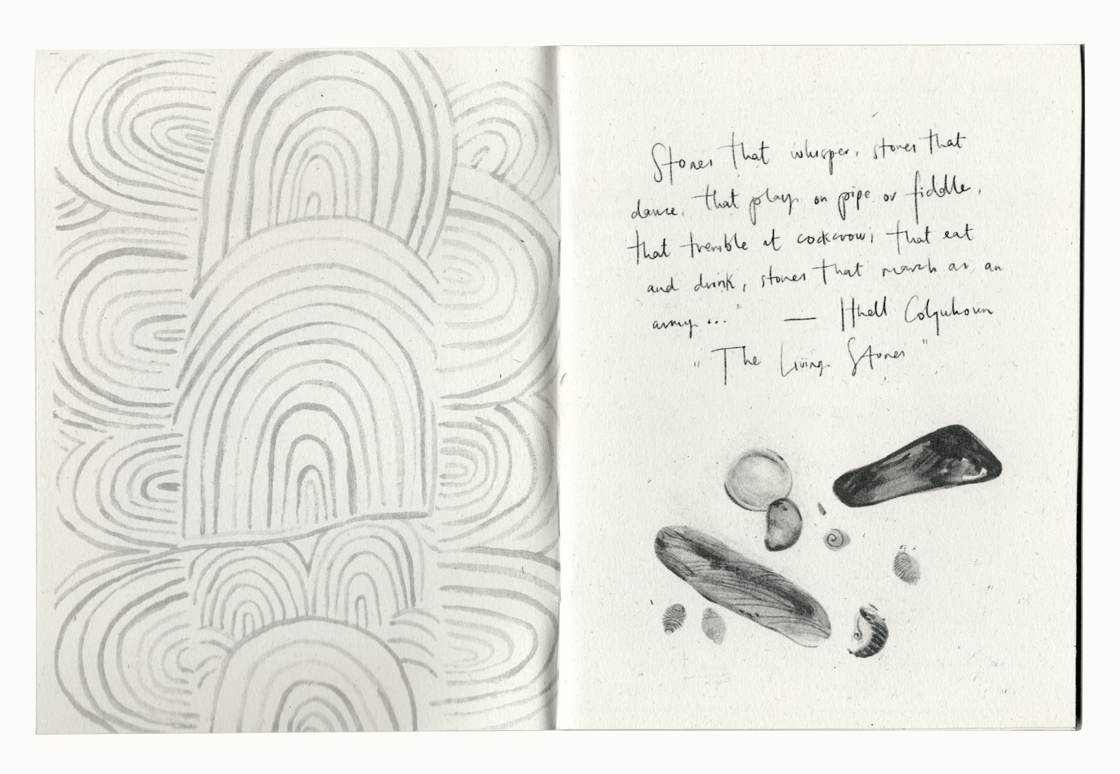 Stones that whisper, stones that
dance, that play on pipe or fiddle,
that tremble at cockcrow, that eat
and drink, stones that march as an
army..." — Ithell Colquhoun
"The Living Stones"